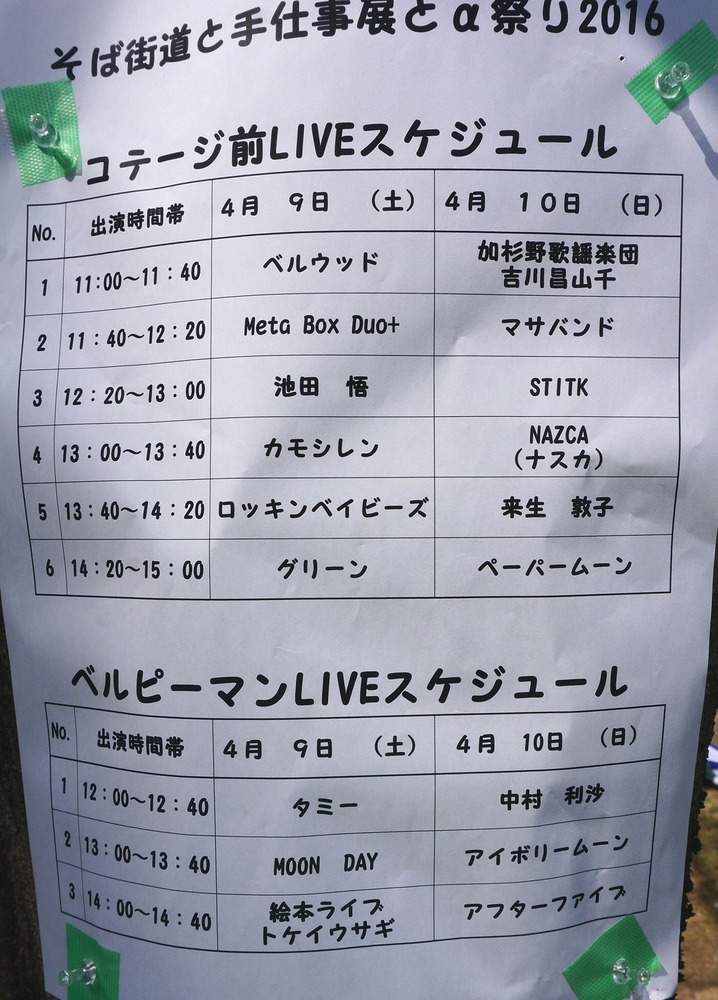 そば街道と手仕事展とα祭り2016
コテージ前LIVEスケジュール
No. 出演時間帯 4月 9日 (土) 4月 10日 (日)
1 11:00〜11:40 ベルウッド 加杉野歌謡楽団
吉川昌山千
2 11:40〜12:20 Meta Box Duo+ マサバンド
3 12:20〜13:00 池田 悟 STITK
4 13:00〜13:40 カモシレン NAZCA
(ナスカ)
5 13:40〜14:20 ロッキンベイビーズ 来生 敦子
6 14:20〜15:00 グリーン ペーパームーン
ベルピーマンLIVEスケジュール
No. 出演時間帯 4月 9日 (土) 4月 10日 (日)
1 12:00〜12:40 タミー 中村 利沙
2 13:00〜13:40 MOON DAY アイボリームーン
3 14:00〜14:40 絵本ライブ アフターファイブ
トケイウサギ